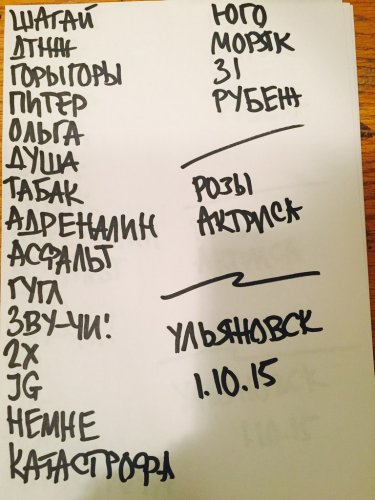 ШАГАЙ
ДТНЖ
ГОРЫГОРЫ
ПИТЕР
ОЛЬГА
ДУША
ТАБАК
АДРЕНАЛИН
АСФАЛЬТ
ГУГЛ
ЗВУ-ЧИ!
2Х
JG
НЕМНЕ
КАТАСТРОФА
ЮГО
МОРЯК
31
РУБЕЖ
РОЗЫ
АКТРИСА
УЛЬЯНОВСК
1.10.15